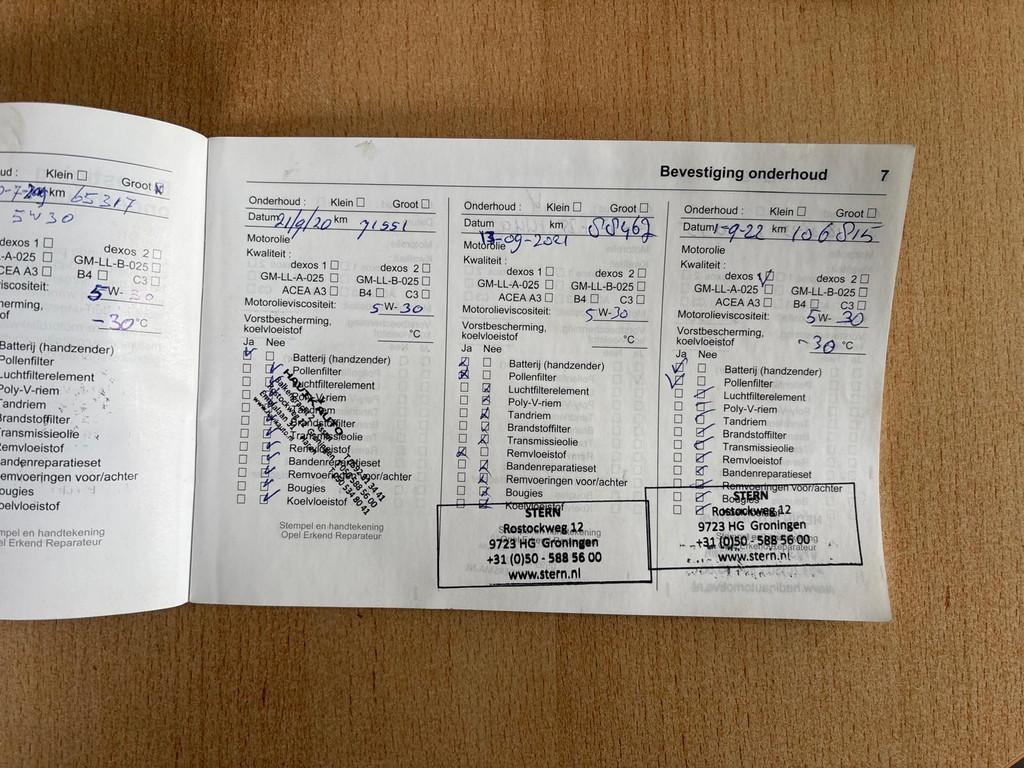 ud : Klein ☐ Groot ☒
km 65317
5W30
dexos 1 ☐ dexos 2 ☐
L-A-025 ☐ GM-LL-B-025 ☐
CEA A3 ☐ B4 ☐ C3 ☐
viscositeit: 5 W- 30
herming,
of -30 °C
Batterij (handzender)
Pollenfilter
Luchtfilterelement
Poly-V-riem
Tandriem
Brandstoffilter
Transmissieolie
Remvloeistof
andenreparatieset
emvoeringen voor/achter
ougies
oelvloeistof
mpel en handtekening
el Erkend Reparateur
Bevestiging onderhoud 7
Onderhoud : Klein ☐ Groot ☐
Datum 21/9/20 km 71551
Motorolie
Kwaliteit :
dexos 1 ☐ dexos 2 ☐
GM-LL-A-025 ☐ GM-LL-B-025 ☐
ACEA A3 ☐ B4 ☐ C3 ☐
Motorolieviscositeit: 5 W- 30
Vorstbescherming,
koelvloeistof °C
Ja Nee
Batterij (handzender)
Pollenfilter
Luchtfilterelement
Brandstoffilter
Transmissieolie
Remvloeistof
Bandenreparatieset
Remvoeringen voor/achter
Bougies
Koelvloeistof
Stempel en handtekening
Opel Erkend Reparateur
Onderhoud : Klein ☐ Groot ☐
Datum km 88467
13-09-2021
Motorolie
Kwaliteit :
dexos 1 ☐ dexos 2 ☐
GM-LL-A-025 ☐ GM-LL-B-025 ☐
ACEA A3 ☐ B4 ☐ C3 ☐
Motorolieviscositeit: 5 W-30
Vorstbescherming,
koelvloeistof °C
Ja Nee
Batterij (handzender)
Pollenfilter
Luchtfilterelement
Poly-V-riem
Tandriem
Brandstoffilter
Transmissieolie
Remvloeistof
Bandenreparatieset
Remvoeringen voor/achter
Bougies
Koelvloeistof
STERN
Rostockweg 12
9723 HG Groningen
+31 (0)50 - 588 56 00
www.stern.nl
Onderhoud : Klein ☐ Groot ☐
Datum 1-9-22 km 106815
Motorolie
Kwaliteit :
dexos 1 ☑ dexos 2 ☐
GM-LL-A-025 ☐ GM-LL-B-025 ☐
ACEA A3 ☐ B4 ☐ C3 ☐
Motorolieviscositeit: 5 W- 30
Vorstbescherming,
koelvloeistof -30 °C
Ja Nee
Batterij (handzender)
Pollenfilter
Luchtfilterelement
Poly-V-riem
Tandriem
Brandstoffilter
Transmissieolie
Remvloeistof
Bandenreparatieset
Remvoeringen voor/achter
Bougies
STERN
Rostockweg 12
9723 HG Groningen
+31 (0)50 - 588 56 00
www.stern.nl